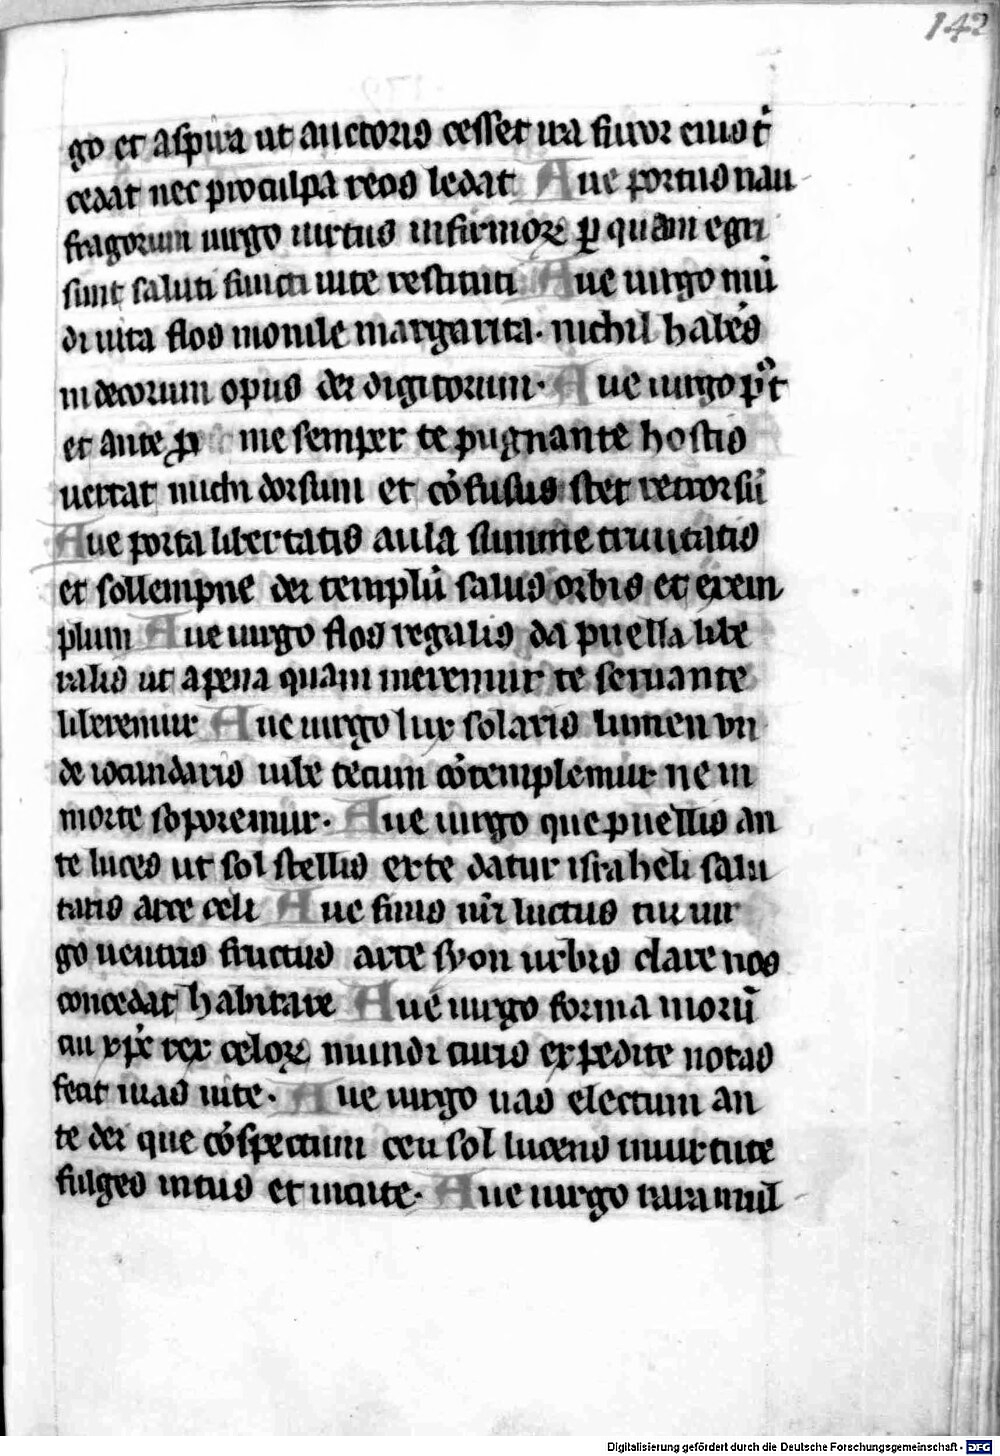 142
go et aspira ut auctoris cesset ira furor eius t̾
cedat nec pro culpa reos ledat Aue portus nau
fragorum uirgo uirtus infirmoꝝ ꝑ quam egri
sunt saluti functi uite restituti Aue uirgo mū
di uita flos monile margarita. nichil habēs
indecorum opus dei digitorum. Aue uirgo
et ante me semper te pugnante hostis
uertat michi dorsum et cōfusus stet retrorsū
Aue porta libertatis aula summe trinitatis
et sollempne dei templū salus orbis et exem
plum Aue uirgo flos regalis da puella libe
ralis ut a pena quam meremur te seruante
liberemur Aue uirgo lux solaris lumen un
de iocundaris iube tecum cōtemplemur ne in
morte soporemur. Aue uirgo que puellis an
te luces ut sol stellis ex te datur israheli salu
taris arce celi Aue finis nr̄i luctus tui uir
go uentris fructus arce syon urbis clare nos
concedat habitare Aue uirgo forma morū
cui xp̄c rex celoꝝ mundi ciuis expedite notas
feat uias uite. Aue uirgo uas electum an
te dei que cōspectum ceu sol lucens in uirtute
fulges intus et in cute. Aue uirgo rara mul
Digitalisierung gefördert durch die Deutsche Forschungsgemeinschaft - DFG